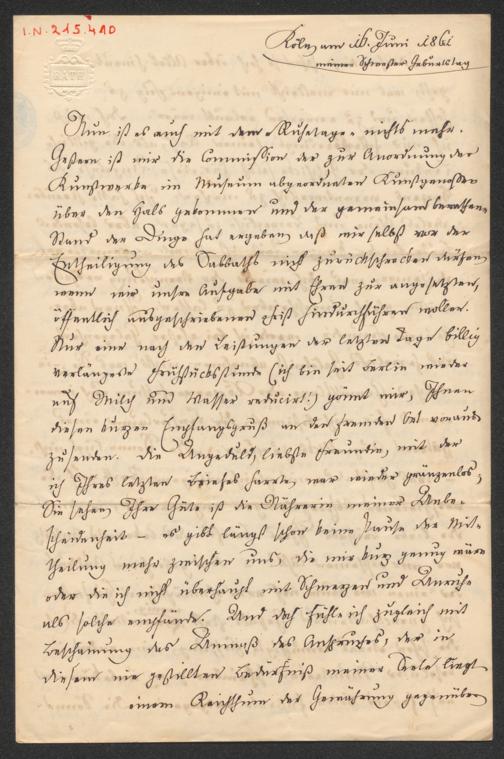 I.N. 215.410
BATH
Köln, am 16. Juni 1861
meiner Schwester Geburtstag
Nun ist es auch mit dem Ruhetage nichts mehr.
Gestern ist mir die Commission der zur Anordnung der
Kunstwerke im Museum abgeordneten Kunstgenossen
über den Hals gekommen und der gemeinsam berathene
Stand der Dinge hat ergeben, daß wir selbst vor der
Entheiligung des Sabbaths nicht zurückschrecken dürfen,
wenn wir unsre Aufgabe mit Ehren zur angesetzten,
öffentlich ausgeschriebenen Frist hindurchführen wollen.
Nur eine nach den Leistungen der letzten Tage billig
verlängerte Frühstücksstunde (ich bin seit Berlin wieder
auf Milch und Wasser reducirt!) gönnt mir, Ihnen
diesen kurzen Empfangsgruß an den fremden Ort voraus-
zusenden. Die Ungeduld, liebste Freundin, mit der
ich Ihres letzten Briefes harrte, war wieder gränzenlos;
Sie sehen, Ihre Güte ist die Nährerin meiner Unbe-
scheidenheit – es gibt längst schon keine Pause der Mit-
theilung mehr zwischen uns, die mir kurz genug wäre
oder die ich nicht überhaupt mit Schmerzen und Unruhe
als solche empfände. Und doch fühle ich zugleich mit
Beschämung das Unmaß des Anspruches, der in
diesem nie gestillten Bedürfniß meiner Seele liegt
einem Reichthum der Gewährung gegenüber